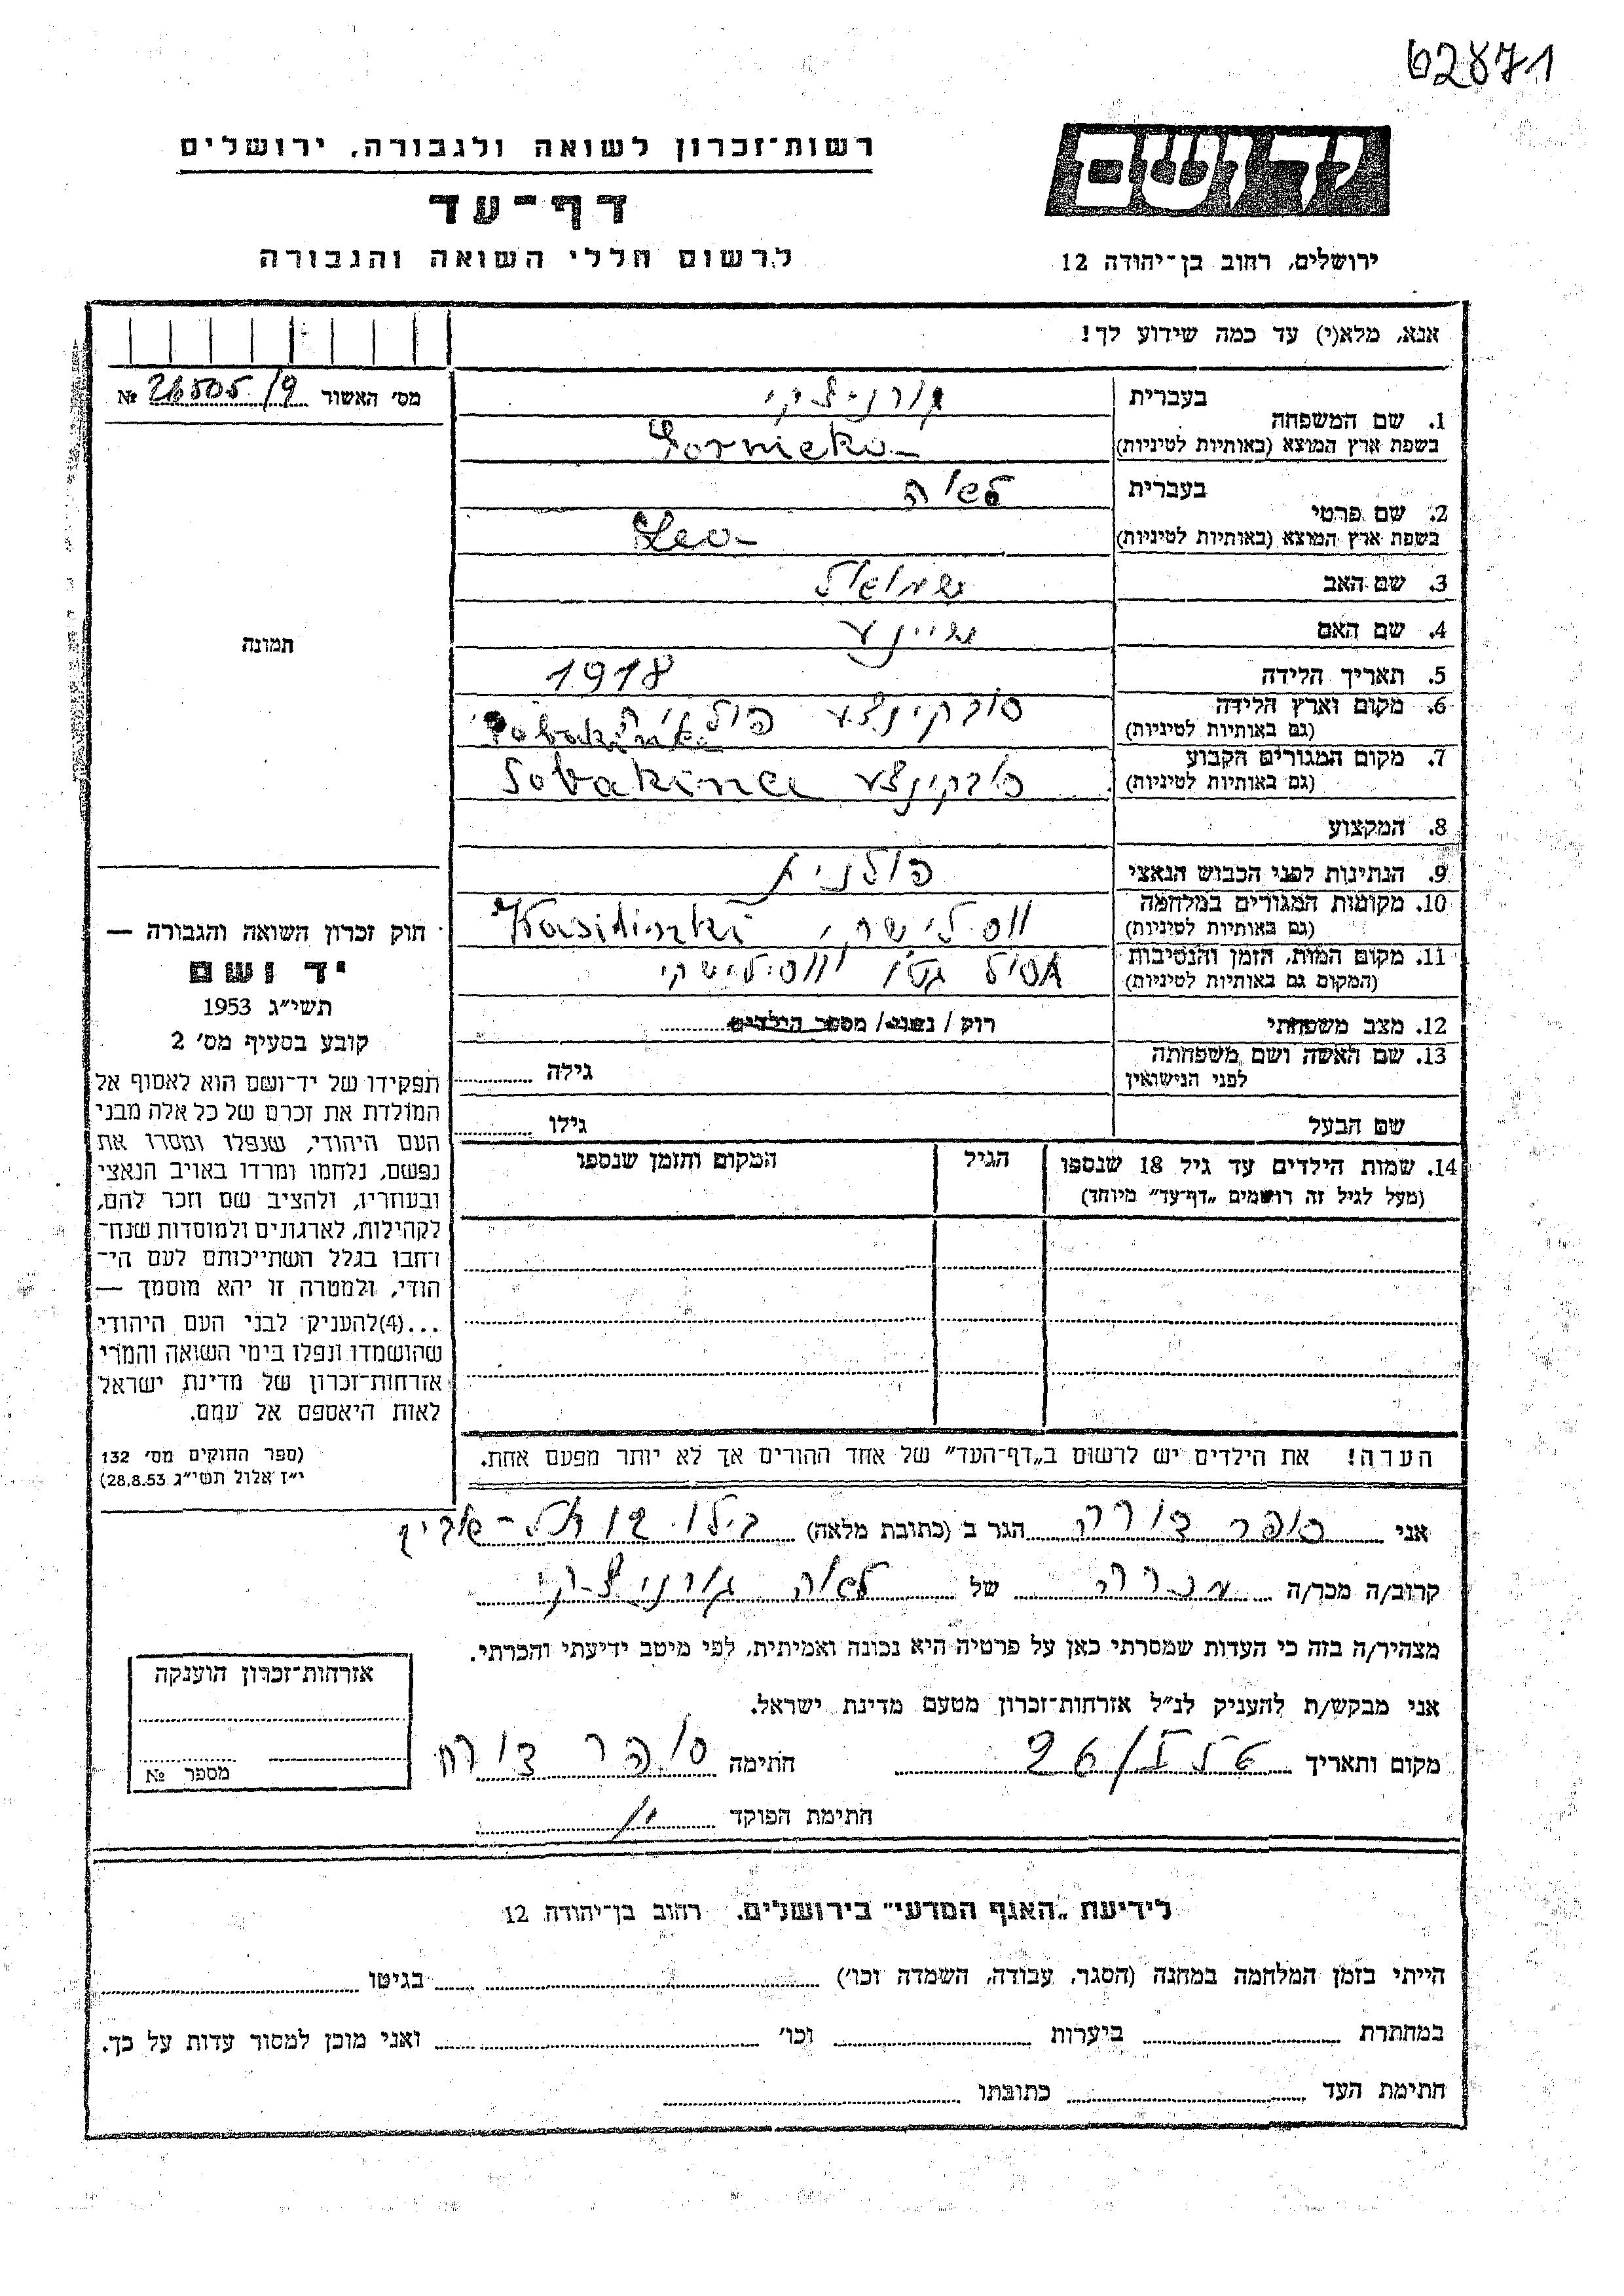 62871
יד ושם
רשות־זכרון לשואה ולגבורה, ירושלים
דף־עד
לרשום חללי השואה והגבורה
ירושלים, רחוב בן־יהודה 12
אנא, מלא(י) עד כמה שידוע לך!
מס׳ האשור № 26505/9
1. שם המשפחה
בעברית
בשפת ארץ המוצא (באותיות לטיניות)
2. שם פרטי
בעברית לאה
בשפת ארץ המוצא (באותיות לטיניות) Lea
3. שם האב שמואל
4. שם האם שיינע
5. תאריך הלידה 1918
6. מקום וארץ הלידה סובקינצע
(גם באותיות לטיניות)
7. מקום המגורים הקבוע סובקינצע Sobakince
(גם באותיות לטיניות)
8. המקצוע
9. הנתינות לפני הכבוש הנאצי פולנית
10. מקומות המגורים במלחמה
(גם באותיות לטיניות)
11. מקום המות, הזמן והנסיבות גטו ווסילישקי
(המקום גם באותיות לטיניות)
12. מצב משפחתי רוק / נשוי / מספר הילדים
13. שם האשה ושם משפחתה גילה
לפני הנישואין
שם הבעל גילו
14. שמות הילדים עד גיל 18 שנספו הגיל המקום והזמן שנספו
(מעל לגיל זה רושמים „דף־עד״ מיוחד)
הערה! את הילדים יש לרשום ב„דף־העד״ של אחד ההורים אך לא יותר מפעם אחת.
תמונה
חוק זכרון השואה והגבורה —
יד ושם
תשי״ג 1953
קובע בסעיף מס׳ 2
תפקידו של יד־ושם הוא לאסוף אל
המולדת את זכרם של כל אלה מבני
העם היהודי, שנפלו ומסרו את
נפשם, נלחמו ומרדו באויב הנאצי
ובעוזריו, ולהציב שם וזכר להם,
לקהילות, לארגונים ולמוסדות שנח־
רבו בגלל השתייכותם לעם הי־
הודי, ולמטרה זו יהא מוסמך —
...(4)להעניק לבני העם היהודי
שהושמדו ונפלו בימי השואה והמרי
אזרחות־זכרון של מדינת ישראל
לאות היאספם אל עמם.
(ספר החוקים מס׳ 132
י״ז אלול תשי״ג 28.8.53)
אני סופר צורה הגר ב (כתובת מלאה) תל-אביב
קרוב/ה מכר/ה מכרה של לאה
מצהיר/ה בזה כי העדות שמסרתי כאן על פרטיה היא נכונה ואמיתית, לפי מיטב ידיעתי והכרתי.
אני מבקש/ת להעניק לנ״ל אזרחות־זכרון מטעם מדינת ישראל.
מקום ותאריך חתימה
חתימת הפוקד
אזרחות־זכרון הוענקה
מספר №
לידיעת „האגף המדעי״ בירושלים. רחוב בן־יהודה 12
הייתי בזמן המלחמה במחנה (הסגר, עבודה, השמדה וכו׳) בגיטו
במחתרת ביערות וכו׳ ואני מוכן למסור עדות על כך.
חתימת העד כתובתו